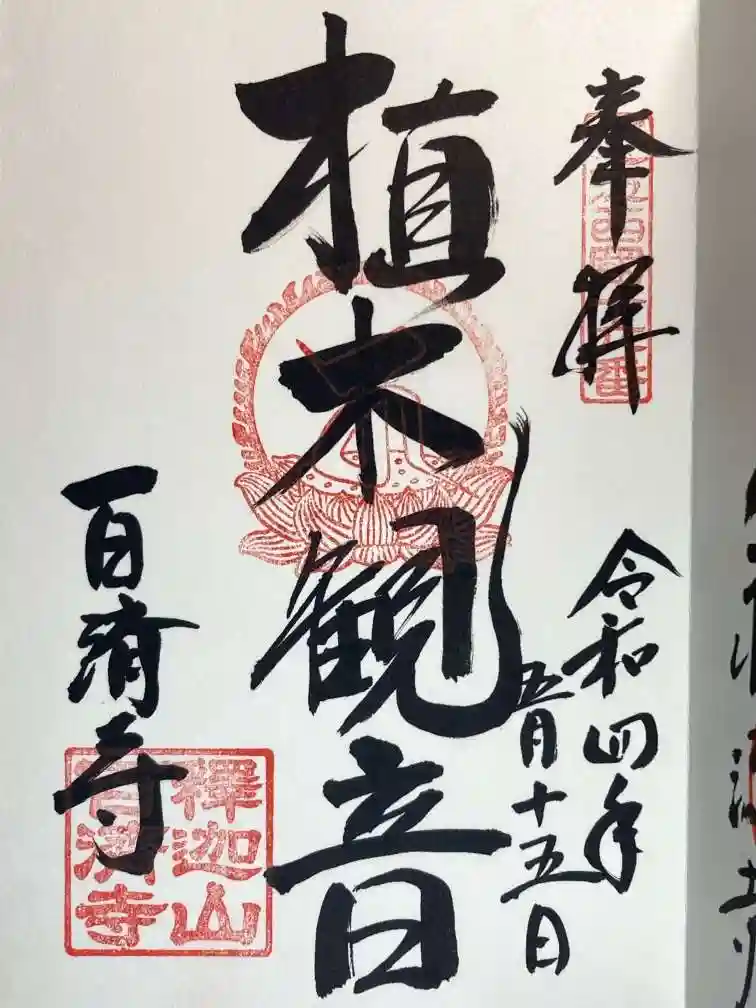 奉拝
令和四年
五月十五日
植木観音
百済寺
釋迦山
百濟寺